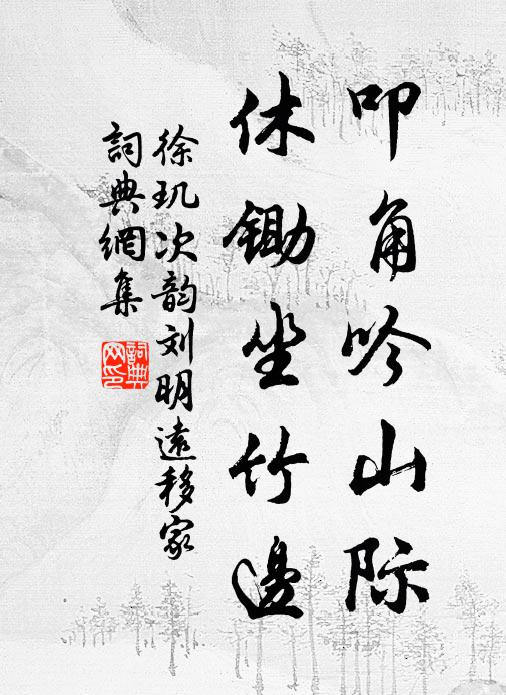 叩角吟山际
休锄坐竹边
徐玑次韵刘明远移家
詞典網集
詞典網印